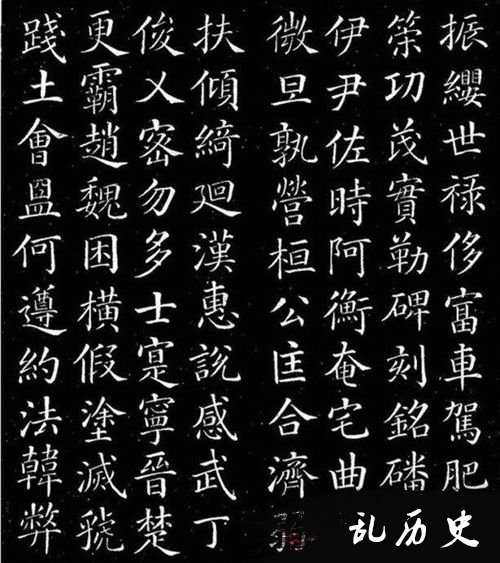 振纓世禄侈富車駕肥
策功茂實勒碑刻銘磻
伊尹佐時阿衡奄宅曲
微旦孰營桓公匡合濟
扶傾綺迴漢惠說感武丁
俊乂密勿多士寔寧晉楚
更霸趙魏困橫假塗滅虢
踐土會盟何遵約法韓弊
乱历史